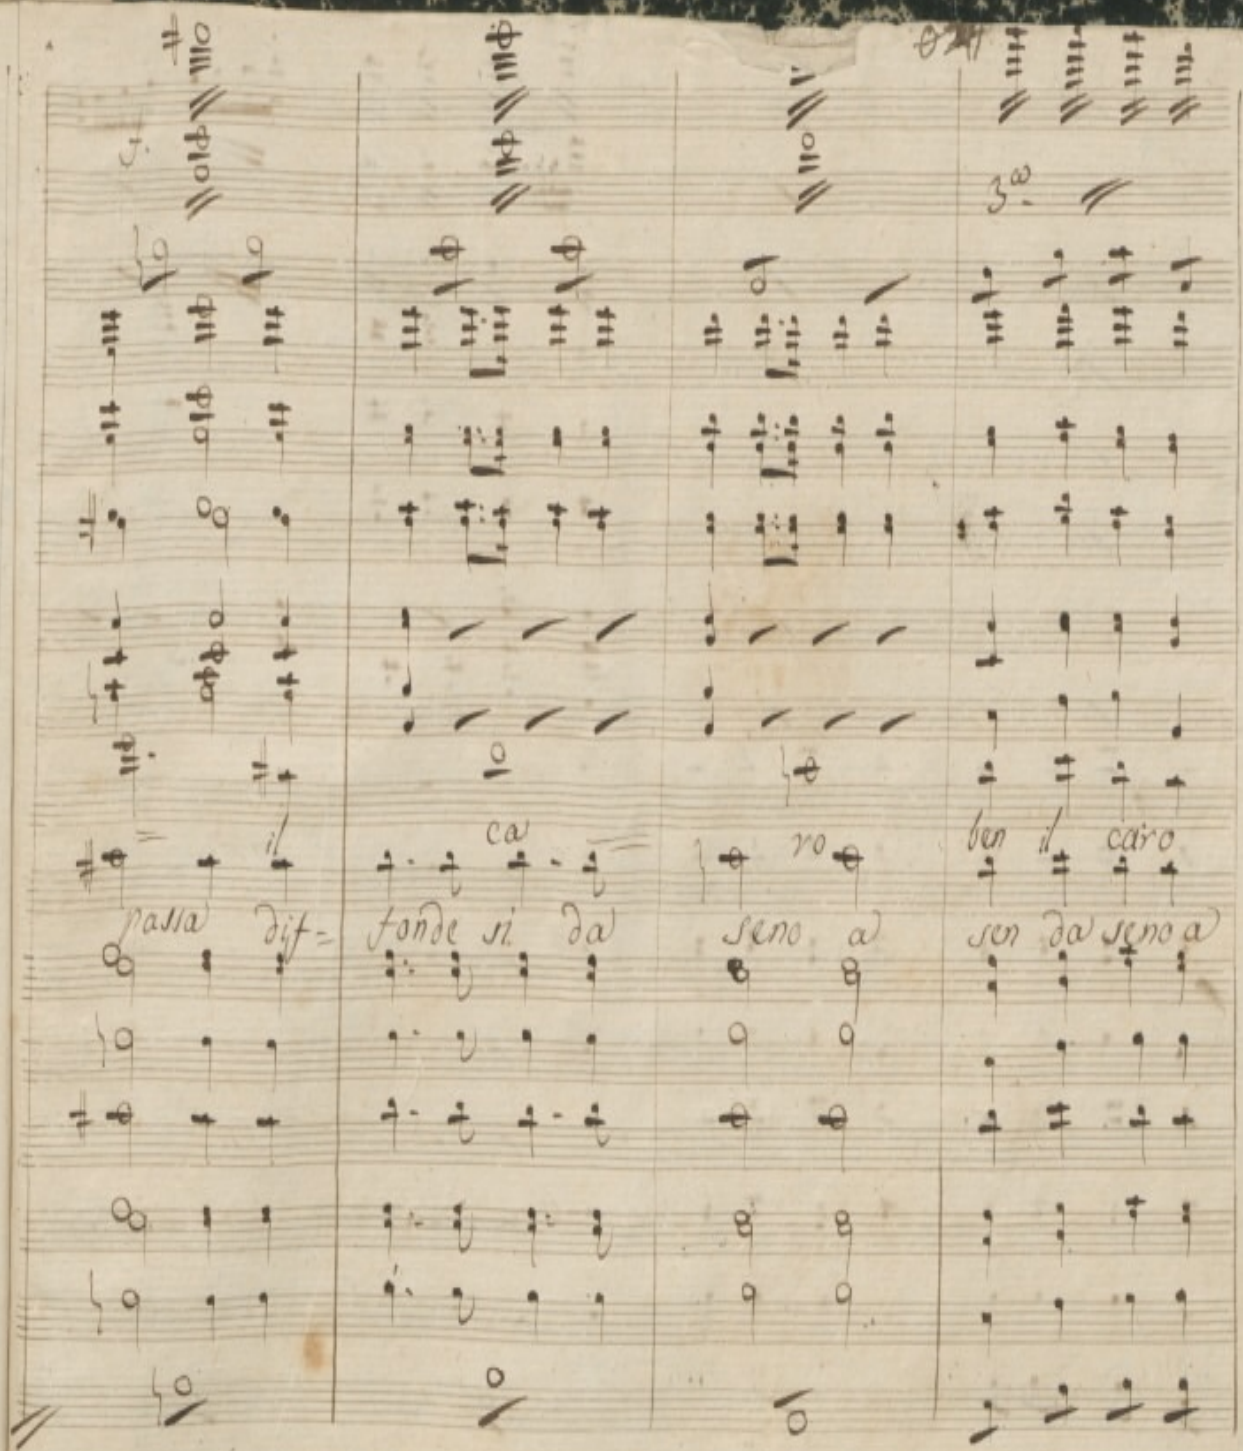 3ª
= il ca = ro ben il caro
passa dif= fonde si da seno a sen da seno a